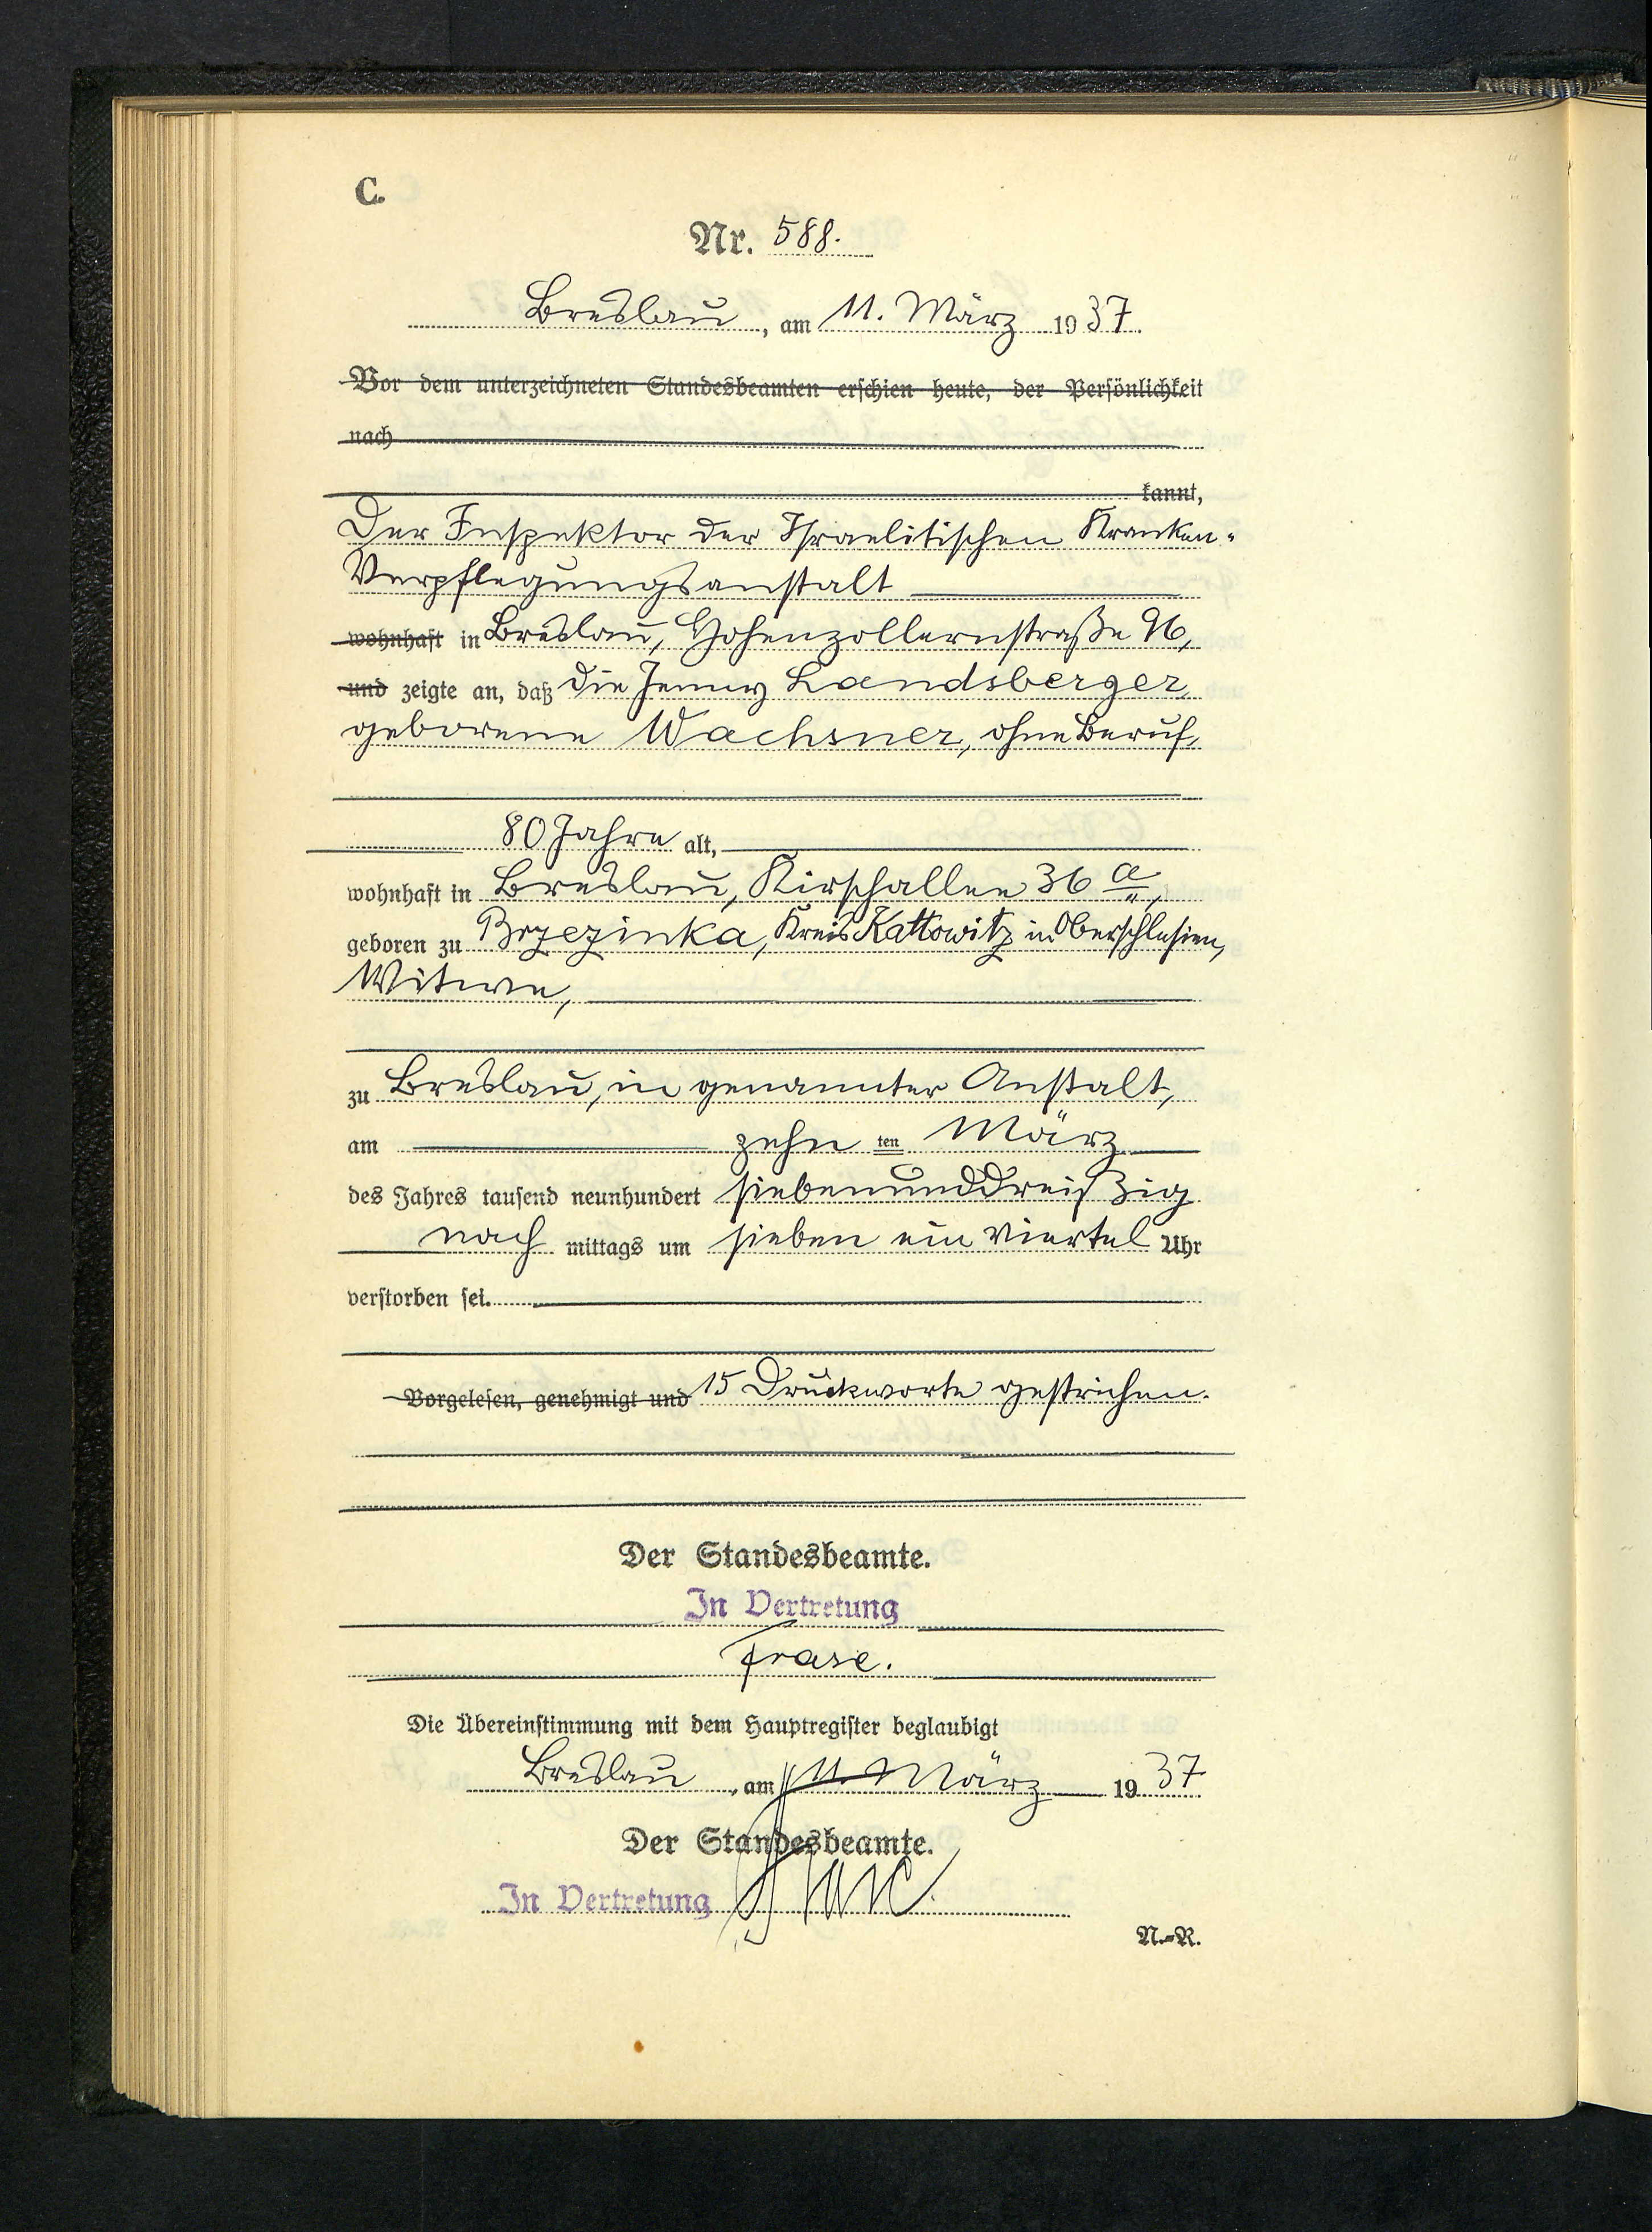 C.
Nr. 588.
Breslau, am 11. März 1937.
Vor dem unterzeichneten Standesbeamten erschien heute, der Persönlichkeit
nach
kannt,
Der Inspektor der Israelitischen Kranken-
Verpflegungsanstalt
wohnhaft in Breslau, Hohenzollernstraße 96,
und zeigte an, daß die Jenny Landsberger
geborene Wachsner, ohne Beruf,
80 Jahre alt,
wohnhaft in Breslau, Kirschallee 36 a,
geboren zu Brzezinka, Kreis Kattowitz in Oberschlesien,
Witwe,
zu Breslau, in genannter Anstalt,
am zehn ten März
des Jahres tausend neunhundert siebenunddreißig
nach mittags um sieben ein Viertel Uhr
verstorben sei.
Vorgelesen, genehmigt und 15 Druckworte gestrichen.
Der Standesbeamte.
In Vertretung
Frase.
Die Übereinstimmung mit dem Hauptregister beglaubigt
Breslau, am 11. März 1937
Der Standesbeamte.
In Vertretung
N.-R.